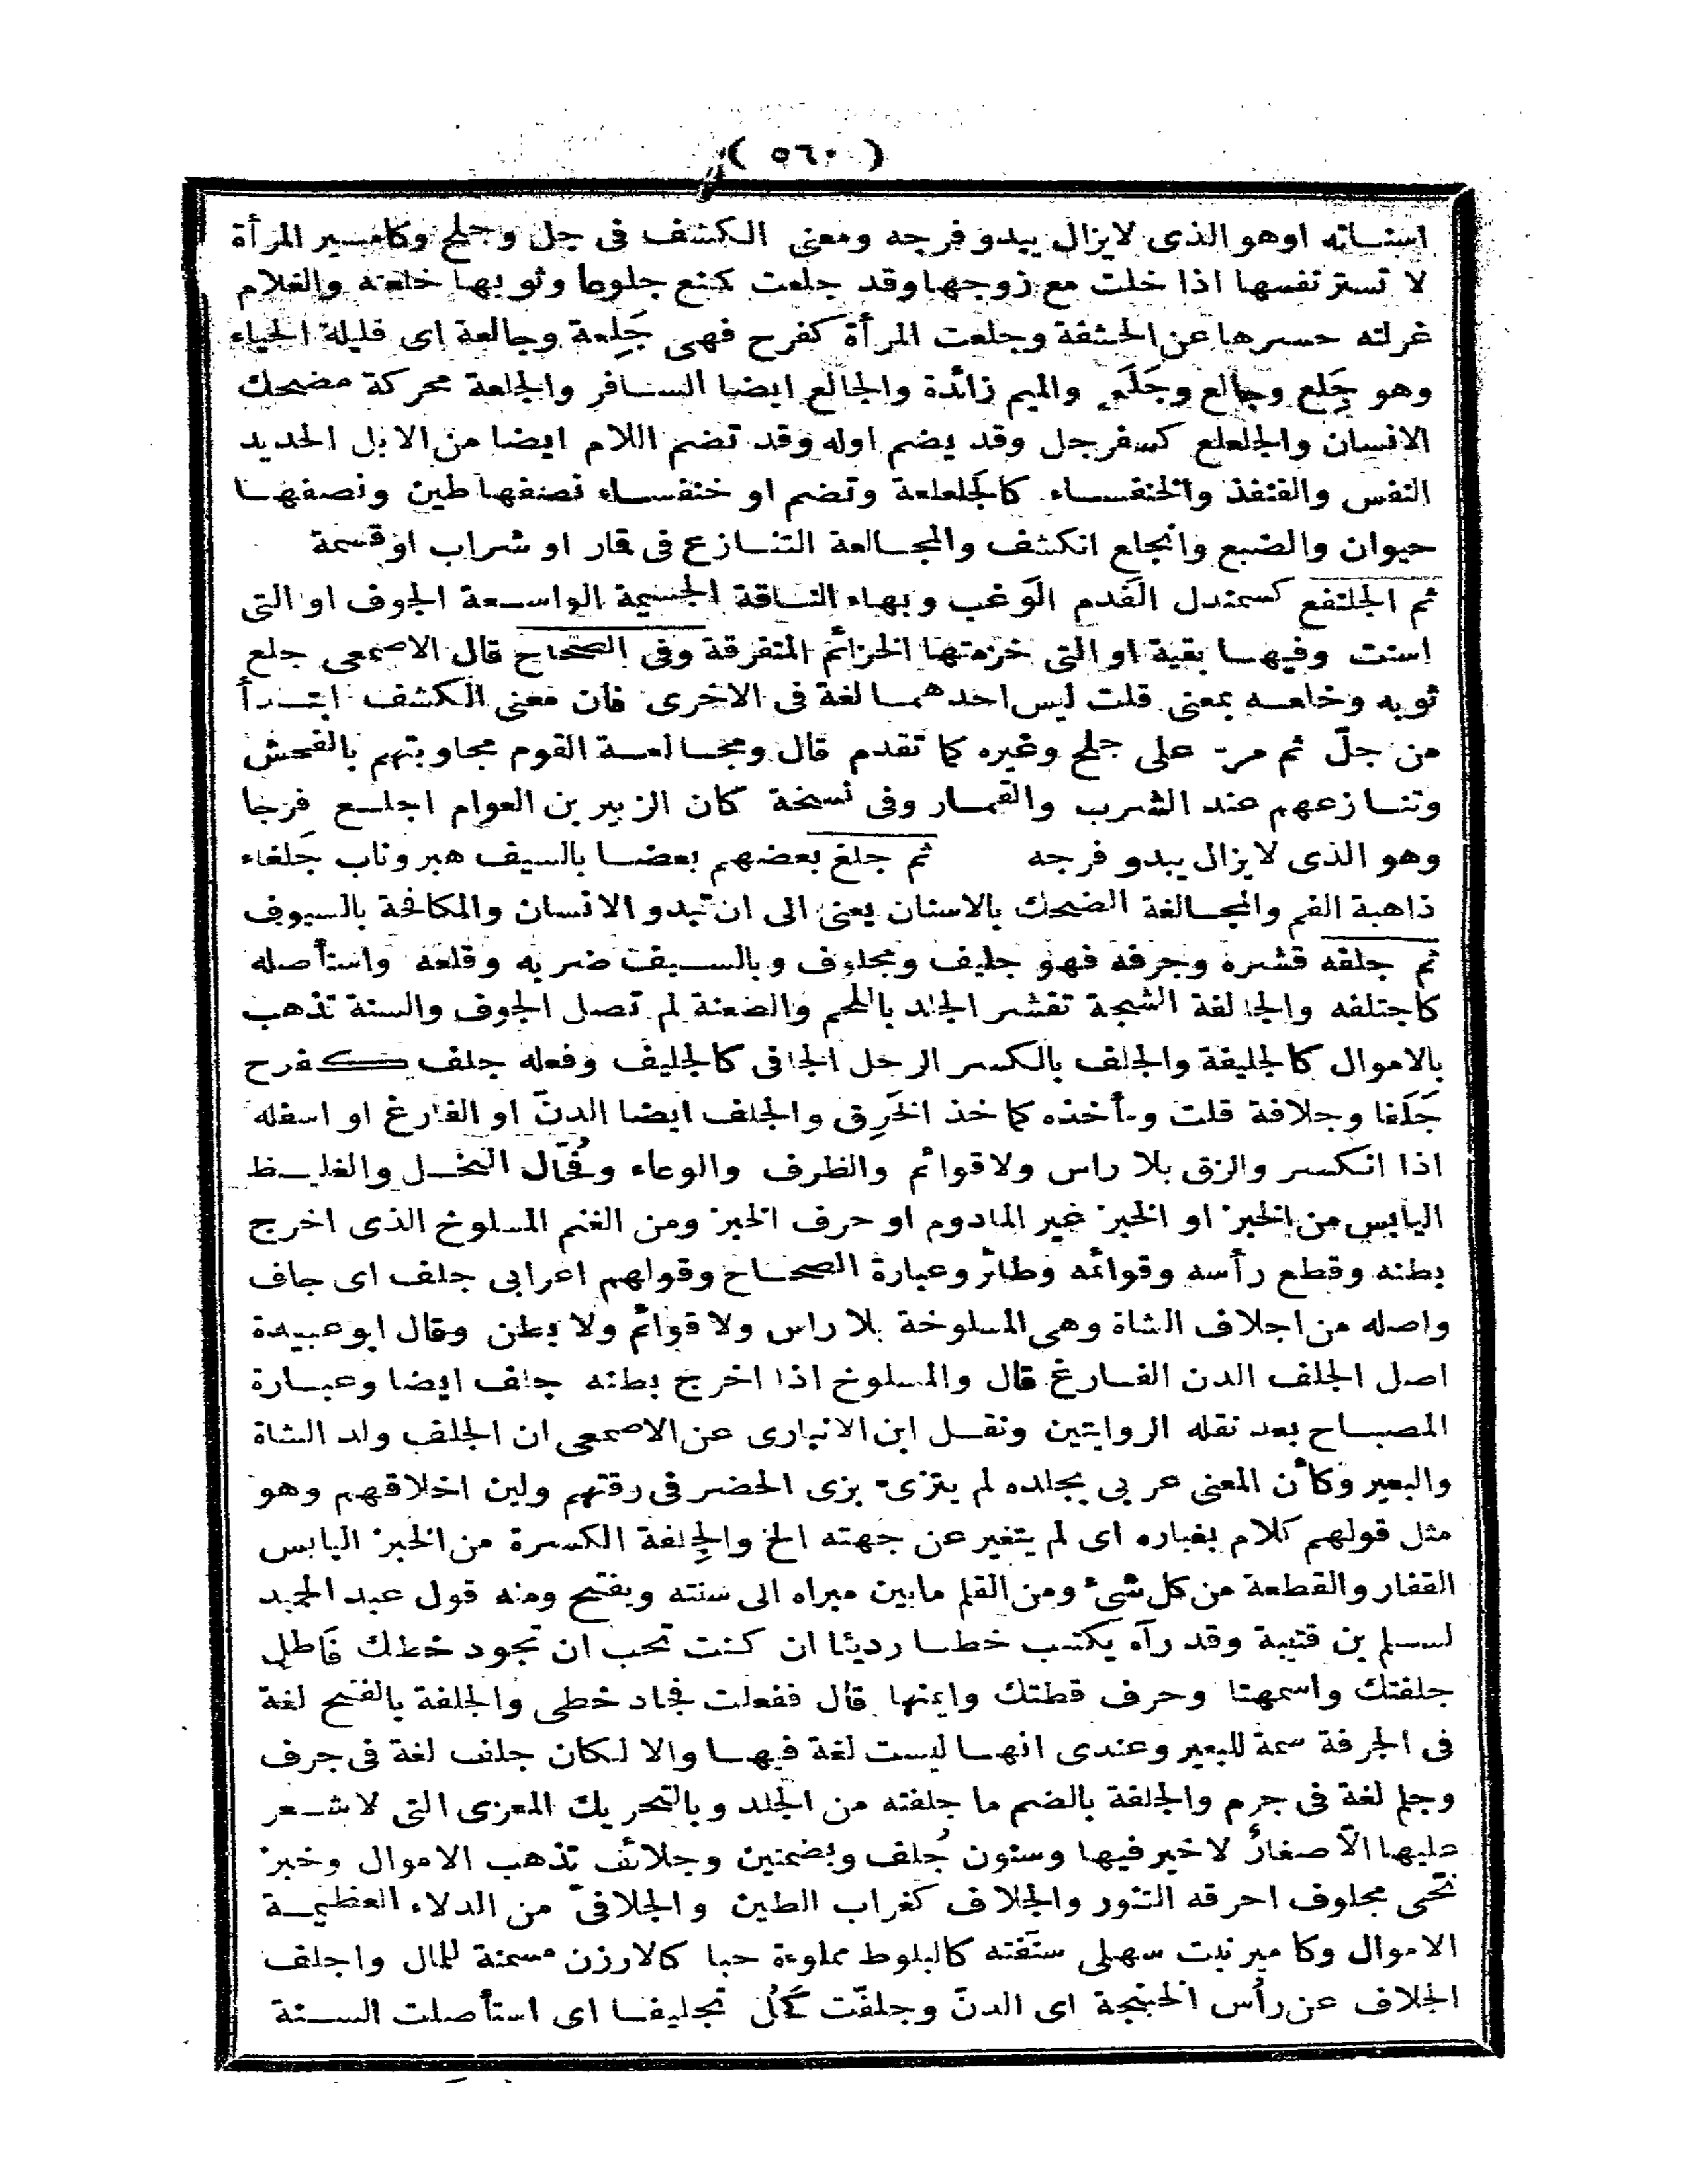 ( ٥٦٠ )
اسنانه اوهو الذى لايزال يبدو فرجه ومعنى الكشف فى جل وجلح وكامير المرأة
لا تستر نفسها اذا خلت مع زوجها وقد جلعت كمنع جلوعا وثوبها خلعته والغلام
غرلته حسرها عن الحشفة وجلعت المرأة كفرح فهى جَلِعة وجالعة اى قليلة الحياء
وهو جَلِع وجالع وجَلَم والميم زائدة والجالع ايضا السافر والجلعة محركة مضحك
الانسان والجلعلع كسفرجل وقد يضم اوله وقد تضم اللام ايضا من الابل الحديد
النفس والقنفذ والخنفساء كالجلعلعة وتضم او خنفساء نصفها طين ونصفها
حيوان والضبع وانجلع انكشف والمجالعة التنازع فى قار او شراب او قسمة
ثم الجلنفع كسمندل الفَدم الوَغب وبهاء الناقة الجسيمة الواسعة الجوف او التى
اسنت وفيها بقية او التى خزمتها الخزائم المتفرقة وفى الصحاح قال الاصمعى جلع
ثوبه وخلعه بمعنى قلت ليس احدهما لغة فى الاخرى فان معنى الكشف ابتدأ
من جلّ ثم مرّ على جلح وغيره كما تقدم قال ومجالعة القوم مجاوبتهم بالفحش
وتنازعهم عند الشرب والقمار وفى نسخة كان الزبير بن العوام اجلع فرجا
وهو الذى لايزال يبدو فرجه ثم جلغ بعضهم بعضا بالسيف هبر وناب جَلغاء
ذاهبة الفم والمجالغة الضحك بالاسنان يعنى الى ان تبدو الانسان والمكافحة بالسيوف
ثم جلفه قشره وجرفه فهو جليف ومجلوف وبالسيف ضربه وقلعه واستأصله
كاجتلفه والجالفة الشجة تقشر الجلد باللحم والضعنة لم تصل الجوف والسنة تذهب
بالاموال كالجليفة والجلف بالكسر الرجل الجافى كالجليف وفعله جلف كفرح
جَلَفا وجلافة قلت ومأخذه كماخذ الخَرِق والجلف ايضا الدنّ او الفارغ او اسفله
اذا انكسر والزق بلا راس ولا قوائم والظرف والوعاء وفُحّال النخل والغليظ
اليابس من الخبز او الخبز غير المادوم او حرف الخبز ومن الغنم المسلوخ الذى اخرج
بطنه وقطع رأسه وقوائمه وطائر وعبارة الصحاح وقولهم اعرابى جلف اى جاف
واصله من اجلاف الشاة وهى المسلوخة بلا راس ولا قوائم ولا بطن وقال ابو عبيدة
اصل الجلف الدن الفارغ قال والمسلوخ اذا اخرج بطنه جلف ايضا وعبارة
المصباح بعد نقله الروايتين ونقل ابن الانبارى عن الاصمعى ان الجلف ولد الشاة
والبعير وكأن المعنى عربى بجلده لم يتزىّ بزى الحضر فى رقتهم ولين اخلاقهم وهو
مثل قولهم كلام بغباره اى لم يتغير عن جهته الخ والجِلفة الكسرة من الخبز اليابس
القفار والقطعة من كل شئ ومن القلم مابين مبراه الى سنته ويفتح ومنه قول عبد الحميد
لسلم بن قتيبة وقد رآه يكتب خطا رديئا ان كنت تحب ان تجود خطك فاطل
جلفتك واسمهتا وحرف قطتك وايمنها قال ففعلت فجاد خطى والجلفة بالفتح لغة
فى الجرفة سمة للبعير وعندى انها ليست لغة فيها والا لكان جلف لغة فى جرف
وجلم لغة فى جرم والجلفة بالضم ما جلفته من الجلد وبالتحريك المعزى التى لا شعر
عليها الّا صغار لا خير فيها وسنون جُلف وبضمتين وجلائف تذهب الاموال وخبز
نحى مجلوف احرقه التنور والجلاف كغراب الطين والجلافىّ من الدلاء العظيمة
الاموال وكامير نبت سهلى سنفته كالبلوط مملوءة حبا كالارزن مسمنة للمال واجلف
الجلاف عن رأس الخنبجة اى الدنّ وجلفت كَحْلُ تجليفا اى استأصلت السنة